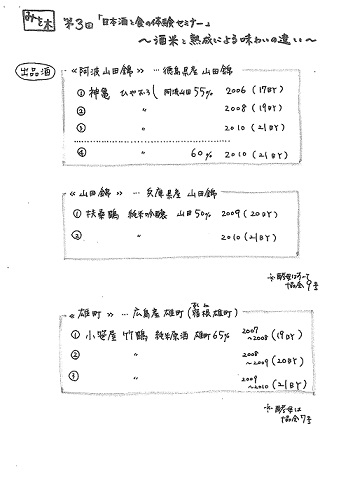 みと木 第3回「日本酒と食の体験セミナー」
～酒米と熟成による味わいの違い～
出品酒
《阿波山田錦》… 徳島県産 山田錦
① 神亀 ひやおろし 阿波山田 55% 2006 (17BY)
② 〃 2008 (19BY)
③ 〃 2010 (21BY)
④ 〃 60% 2010 (21BY)
《山田錦》… 兵庫県産 山田錦
① 扶桑鶴 純米吟醸 山田 50% 2009 (20BY)
② 〃 2010 (21BY)
※酵母はすべて
協会9号
《雄町》… 広島産 雄町 (箱根雄町)
① 小笹屋 竹鶴 純米原酒 雄町 65% 2007
～2008 (19BY)
② 〃 2008
～2009 (20BY)
③ 〃 2009
～2010 (21BY)
※酵母は
協会7号